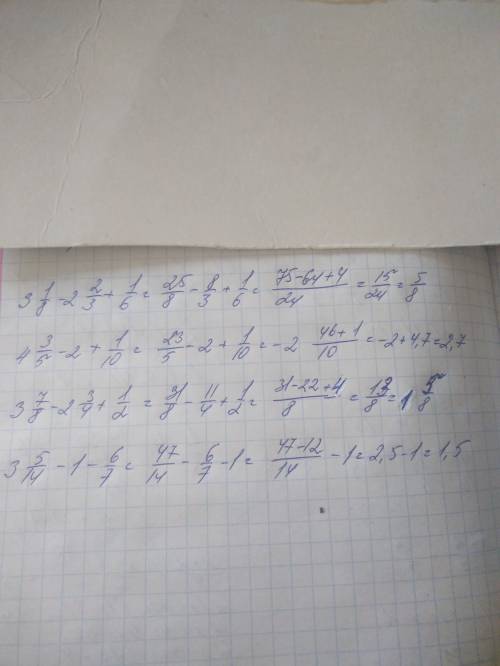 3 1/8 - 2 2/3 + 1/6 = 25/8 - 8/3 + 1/6 = (75-64+4)/24 = 15/24 = 5/8
4 3/5 - 2 + 1/10 = 23/5 - 2 + 1/10 = -2 (46+1)/10 = -2+4,7=2,7
3 7/8 - 2 3/4 + 1/2 = 31/8 - 11/4 + 1/2 = (31-22+4)/8 = 13/8 = 1 5/8
3 5/14 - 1 - 6/7 = 47/14 - 6/7 - 1 = (47-12)/14 - 1 = 2,5-1=1,5